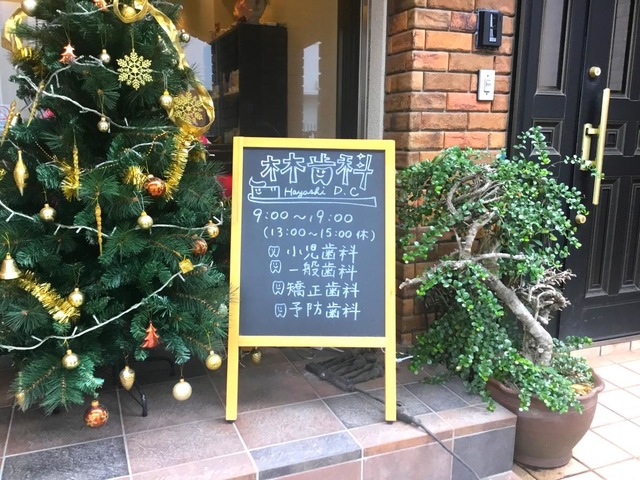 林歯科
Hayashi D.C
9:00～19:00
(13:00～15:00休)
小児歯科
一般歯科
矯正歯科
予防歯科